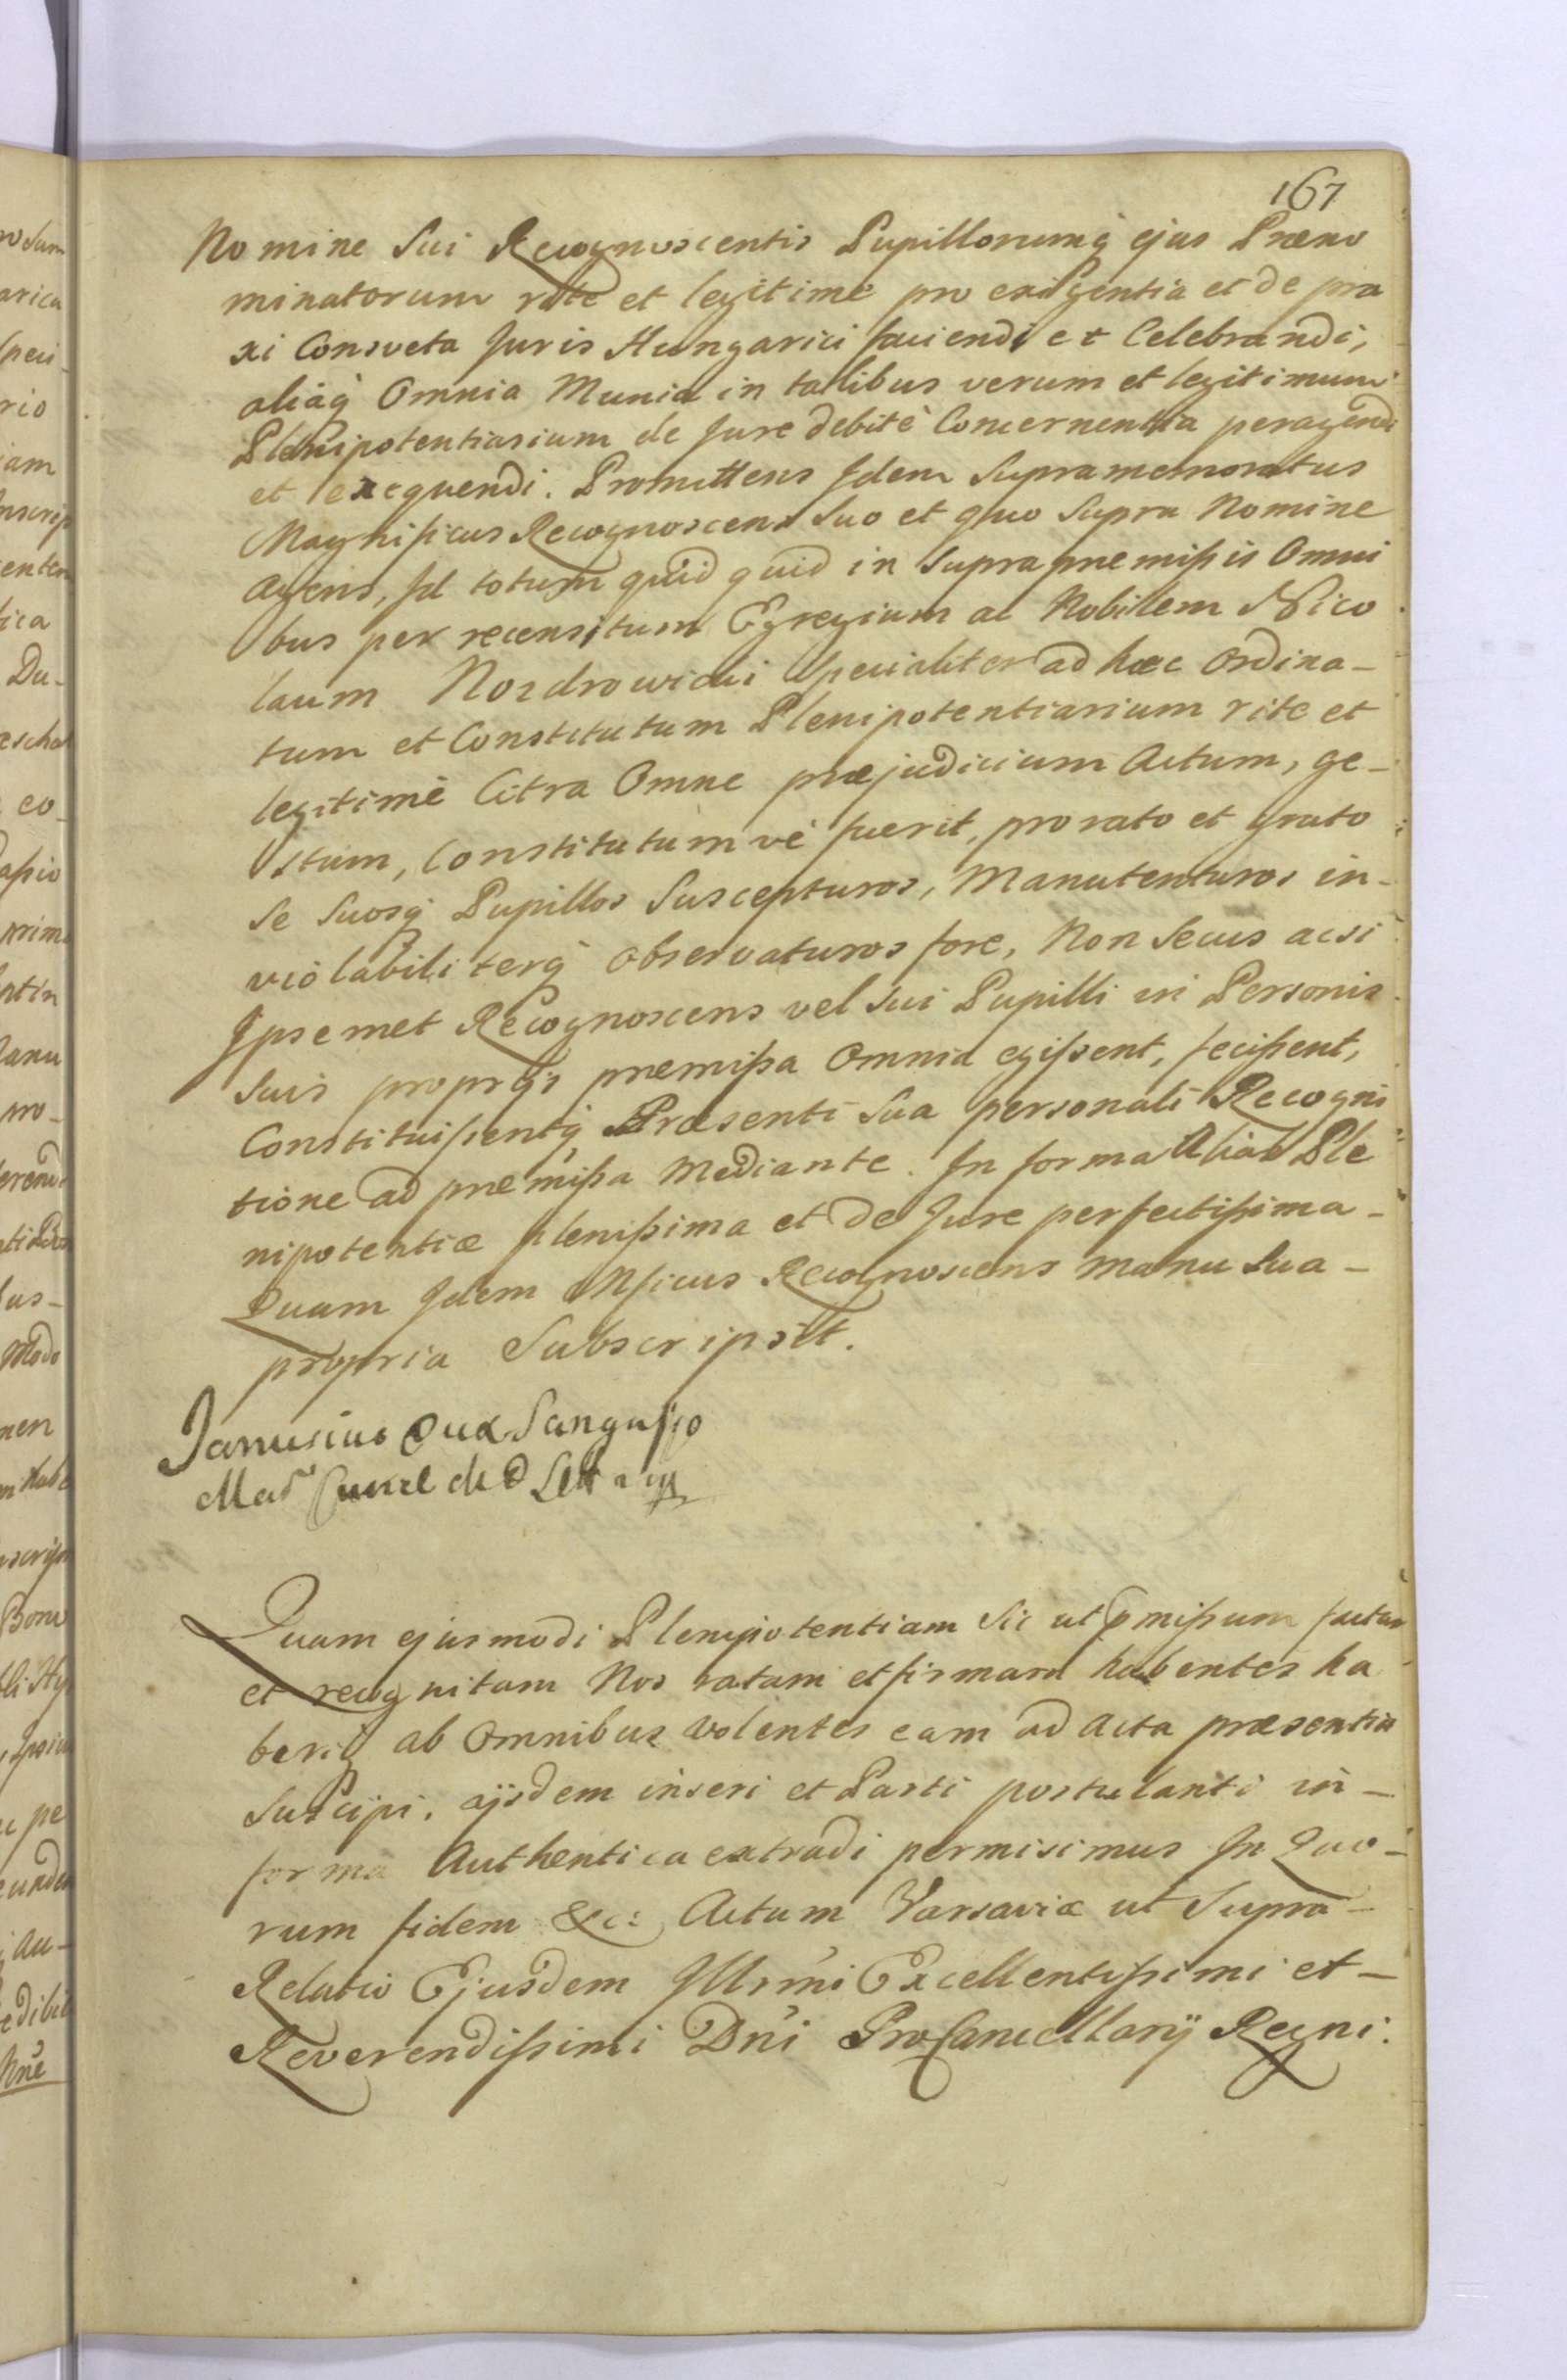 167
Nomine Sui Recognoscentis Pupillorumq̀ ejus Præno
minatorum rite et legitimè pro exigentia et de pra
xi Consveta Juris Hungarici faciendi et Celebrandi,
aliaq̀ Omnia Munia in talibus verum et legitimum
Plenipotentiarium de Jure debitè Concernentia peragendi
et exequendi. Promittens Idem Supramemoratus
Magnificus Recognoscens Suo et quo Supra Nomine
agens, Id totum quid quid in Suprapremißis Omni
bus per recensitum Egregium ac Nobilem Nico
laum Nozdrowicki Specialiter ad hæc Ordina-
tum et Constitutum Plenipotentiarium rite et
legitimè Citra Omne præjudicium Actum, ge-
stum, Constitutum vè fuerit, pro rato et grato
Se Suosq̀ Pupillos Suscepturos, Manutenturos in-
violabiliterq̀ observaturos fore, Non Secus acsi
Ipsemet Recognoscens vel Sui Pupilli in Personis
Suis proprÿs premißa Omnia egißent, fecißent,
Constituißentq̀ Præsenti Sua personali Recogni
tione ad premißa Mediante. In forma Alias Ple
nipotentiæ plenißima et de Jure perfectißima-
Quam Idem Mficus Recognoscens manu Sua-
propria Subscripsit.
Janusius Dux Sangusko
Quam ejusmodi Plenipotentiam Sic ut pmißum factam
et recognitam Nos ratam et firmam habentes ha
beriq̀ ab Omnibus volentes eam ad Acta præsentia
Suscipi, ijsdem inseri et Parti postulanti in-
forma Authentica extradi permisimus In Quo-
rum fidem &c: Actum Varsaviæ ut Supra-
Relatio Ejusdem Illrmi Excellentißimi et-
Reverendißimi Dn̄i ProCancellarÿ Regni.